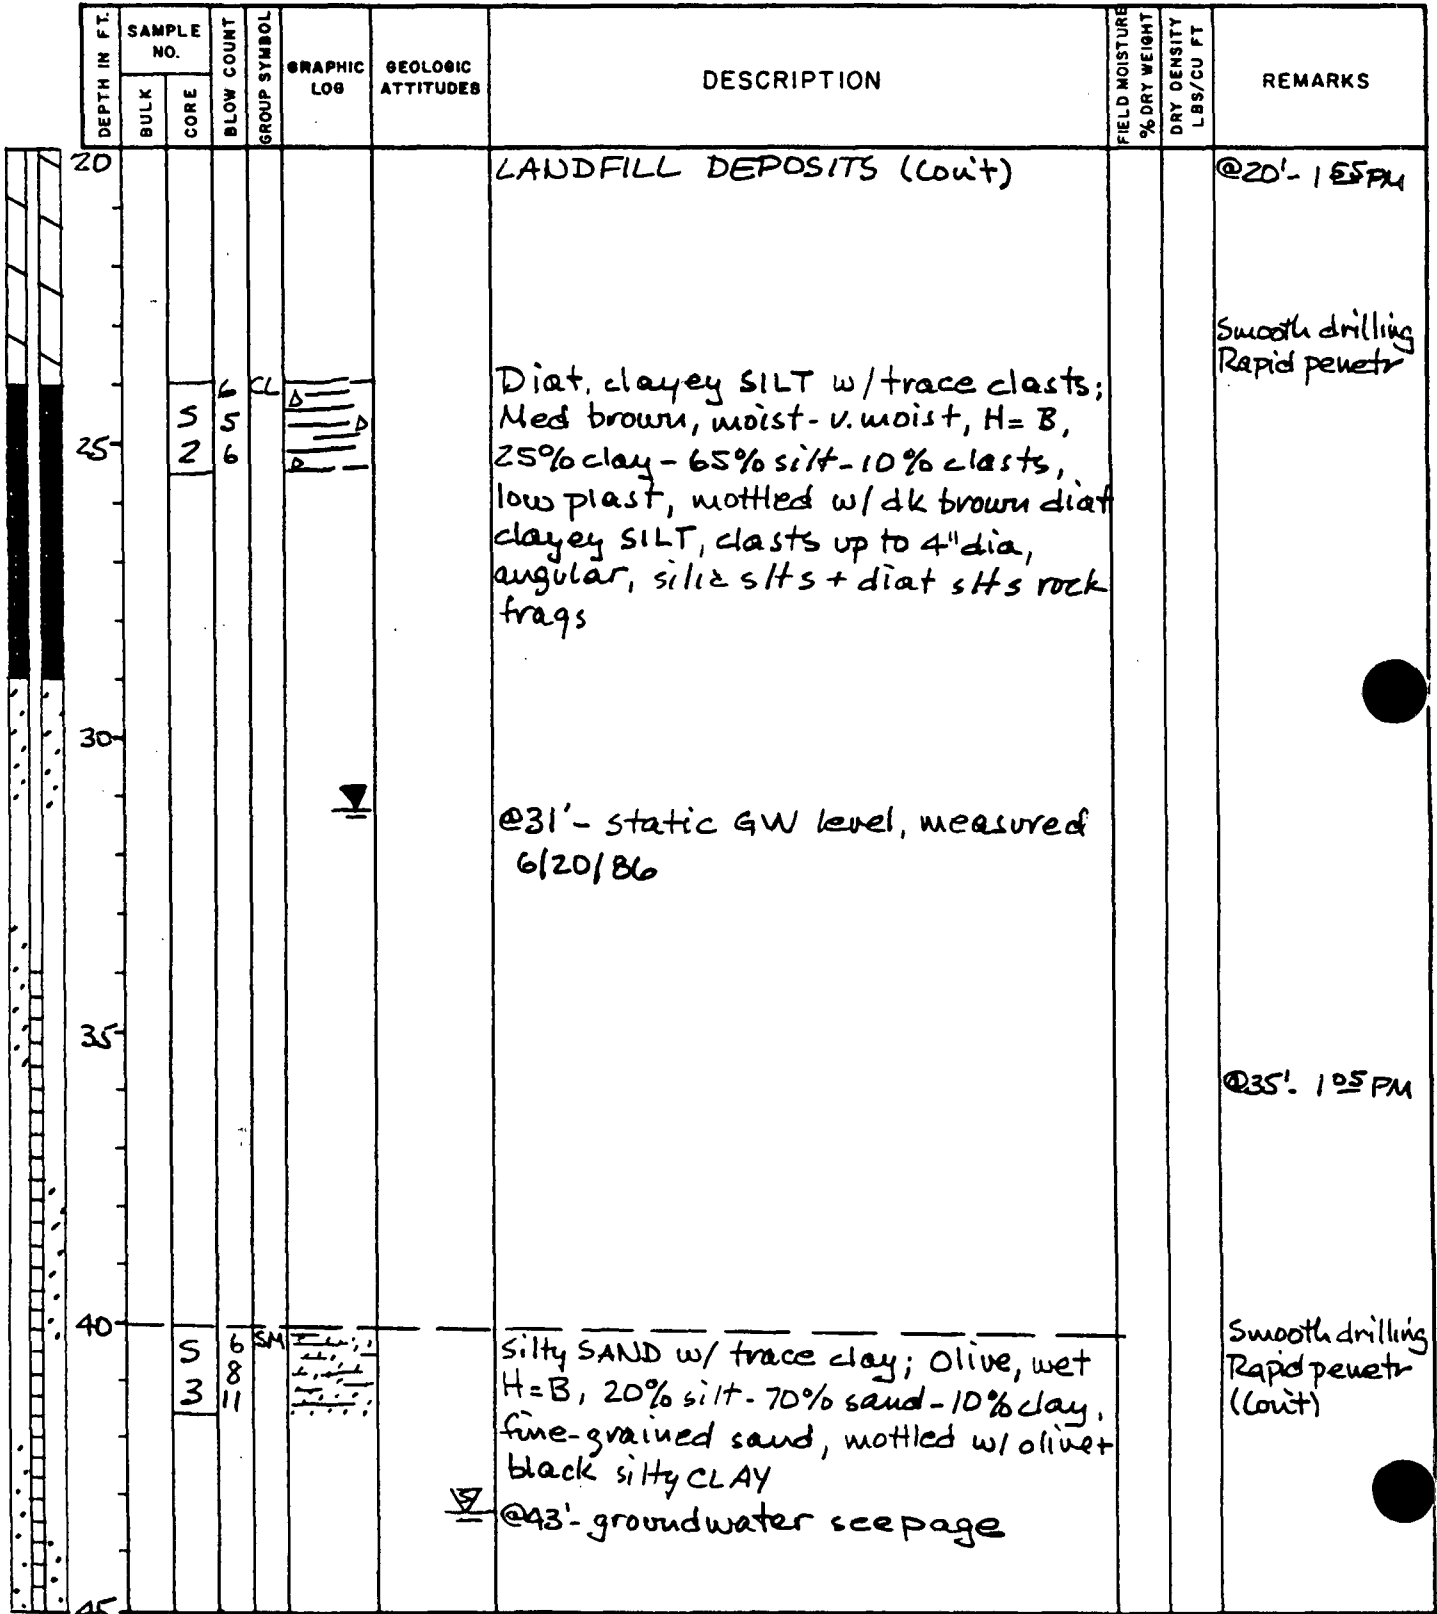 DEPTH IN FT.
SAMPLE NO.
BULK
CORE
BLOW COUNT
GROUP SYMBOL
GRAPHIC LOG
GEOLOGIC ATTITUDES
DESCRIPTION
FIELD MOISTURE % DRY WEIGHT
DRY DENSITY LBS/CU FT
REMARKS
20
LANDFILL DEPOSITS (Con't)
@20'- 1 55 PM
Smooth drilling
Rapid penetr
6 CL
S 5
25 2 6
Diat, clayey SILT w/ trace clasts;
Med brown, moist - v. moist, H= B,
25% clay - 65% silt - 10% clasts,
low plast, mottled w/ dk brown diat
clayey SILT, clasts up to 4" dia,
angular, silic slts + diat slts rock
frags
30
@31'- static GW level, measured
6/20/86
35
@35'- 1 05 PM
40
S 6 SM
8
3 11
Silty SAND w/ trace clay; Olive, wet
H=B, 20% silt - 70% sand - 10% clay,
fine-grained sand, mottled w/ olive +
black silty CLAY
Smooth drilling
Rapid penetr
(Con't)
S
@43'- groundwater seepage
45